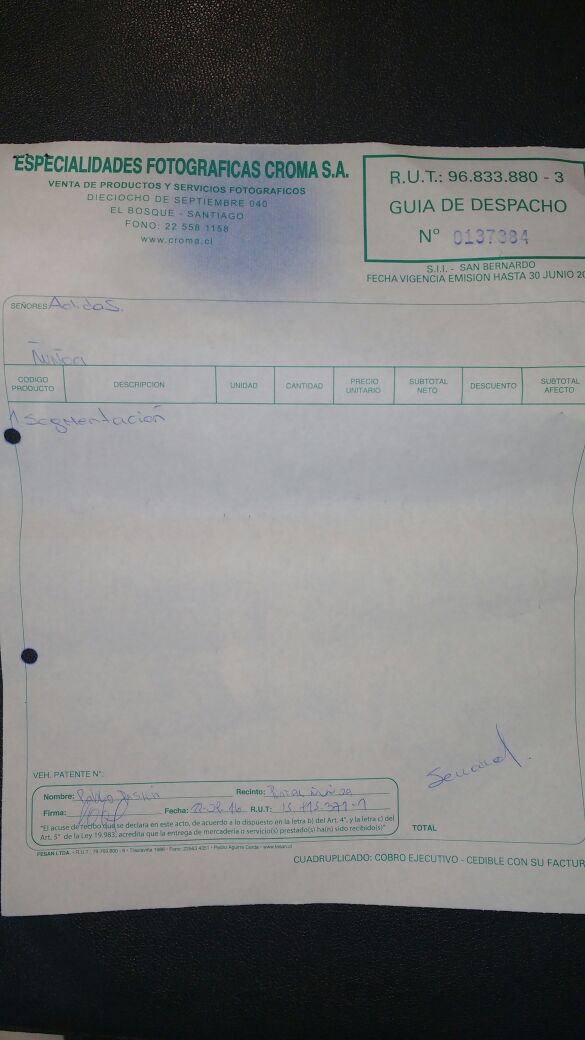 ESPECIALIDADES FOTOGRAFICAS CROMA S.A.
VENTA DE PRODUCTOS Y SERVICIOS FOTOGRAFICOS
DIECIOCHO DE SEPTIEMBRE 040
EL BOSQUE - SANTIAGO
FONO: 22 558 1158
www.croma.cl
R.U.T.: 96.833.880 - 3
GUIA DE DESPACHO
N° 0137384
S.I.I. - SAN BERNARDO
FECHA VIGENCIA EMISION HASTA 30 JUNIO 20
SEÑORES Adidas.
Ñuñoa
CODIGO PRODUCTO DESCRIPCION UNIDAD CANTIDAD PRECIO UNITARIO SUBTOTAL NETO DESCUENTO SUBTOTAL AFECTO
1 Segmentación
VEH. PATENTE N°:
Nombre: Pablo Recinto:
Firma: Fecha: R.U.T.:
"El acuse de recibo que se declara en este acto, de acuerdo a lo dispuesto en la letra b) del Art. 4°, y la letra c) del
Art. 5° de la Ley 19.983, acredita que la entrega de mercadería o servicio(s) prestado(s) ha(n) sido recibido(s)"
TOTAL
FESAN LTDA.
CUADRUPLICADO: COBRO EJECUTIVO - CEDIBLE CON SU FACTUR